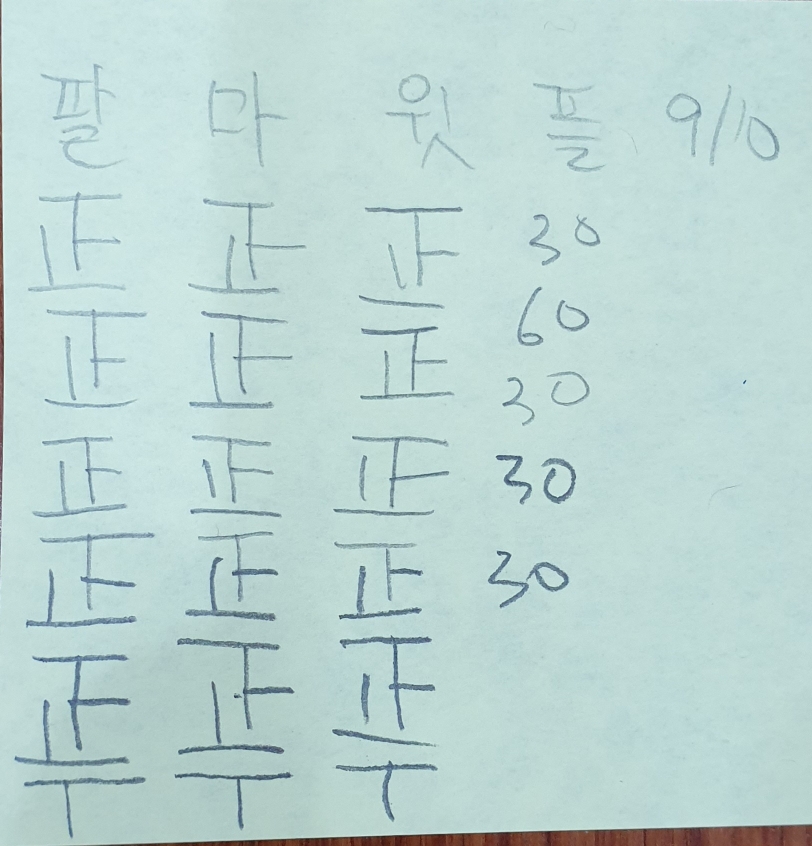 팔 마 윗 플 9/10
正 正 正 30
正 正 正 60
正 正 正 30
正 正 正 30
正 正 正 30
正 正 正
丅 丅 丅